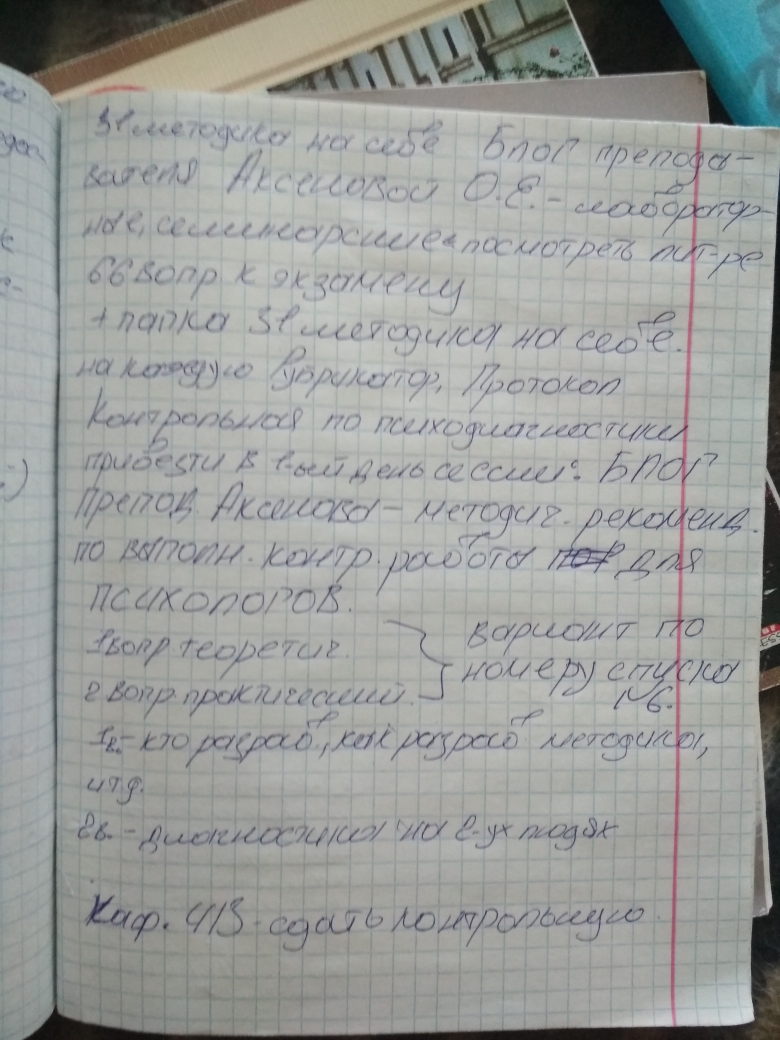 31 методика на себе Блог препода-
вателя Аксеновой О.Е. - лаборатор-
ные, семинарские посмотреть лит-ре
66 вопр. к экзамену
+ папка 31 методика на себе.
на каждую Рубрикатор, Протокол
Контрольная по психодиагностики
привезти в 1-ый день сессии: БЛОГ
Препод. Аксенова - методич. рекоменд.
по выполн. контр. работы для
психологов.
1 вопр теоретич. вариант по
2 вопр. практический. номеру списка
№6.
1в. - кто разраб., как разраб методика,
итд.
2в. - диагностика на 2-ух людях
Каф. 413 - сдать контрольную.